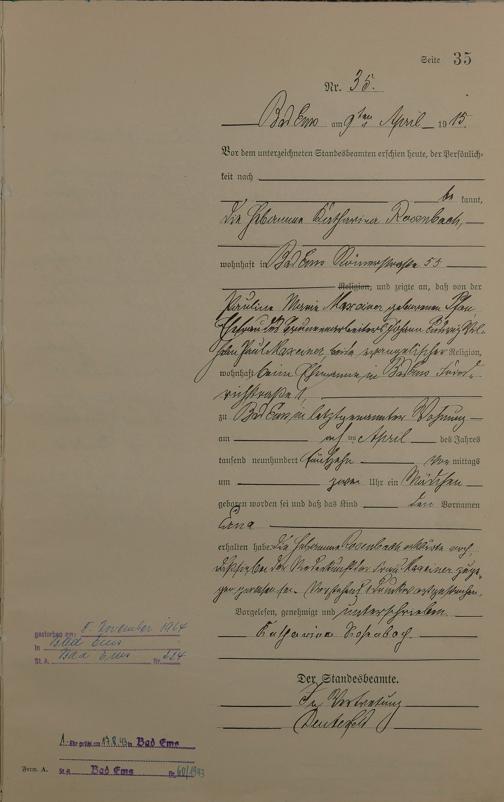 Seite 35
Nr. 35.
Bad Ems am 9ten April 1915.
Vor dem unterzeichneten Standesbeamten erschien heute, der Persönlich-
keit nach
be kannt,
die Hebamme Katharina Rosenbach,
wohnhaft in Bad Ems Römerstraße 53
Religion, und zeigte an, daß von der
Pauline Marie Maxeiner geborenen
Ehefrau des Johann Ludwig Wil-
helm Paul Maxeiner, beide evangelischer Religion,
wohnhaft beim Ehemanne, in Bad Ems Fried-
richstraße 1,
zu Bad Ems in letztgenannter Wohnung
am April des Jahres
tausend neunhundert fünfzehn Vor mittags
um zwei Uhr ein Mädchen
geboren worden sei und daß das Kind den Vornamen
Erna
erhalten habe. Die Hebamme Rosenbach erklärte noch,
daß sie bei der Niederkunft der Frau Maxeiner zuge-
gen gewesen sei.
Vorgelesen, genehmigt und unterschrieben
Katharina Rosenbach
Der Standesbeamte.
In Vertretung
gestorben am: 5. November 1964
in Bad Ems
St. A. Bad Ems Nr.
1. Ehe geschl. am 17.8.43 in Bad Ems
St. A. Bad Ems Nr. 60/1943
Form. A.